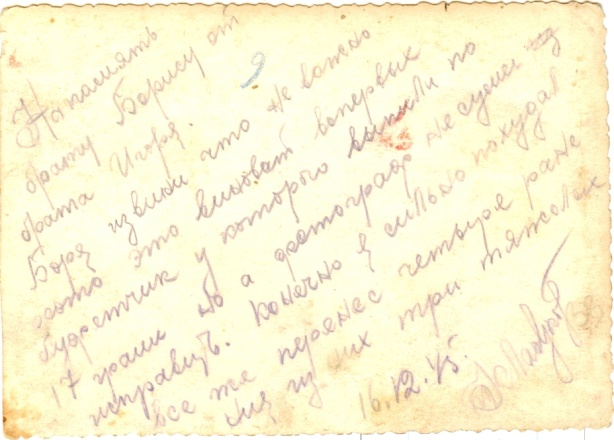 На память
брату Борису от
брата Игоря
Боря извини что не важно
фото это виноват вопервых
буфетчик у которого выпили по
17 грамм но а фотограф не сумел
исправить. Конечно я сильно похудал
все же перенес четыре ране
ния из них три тяжолых
16.12.45.